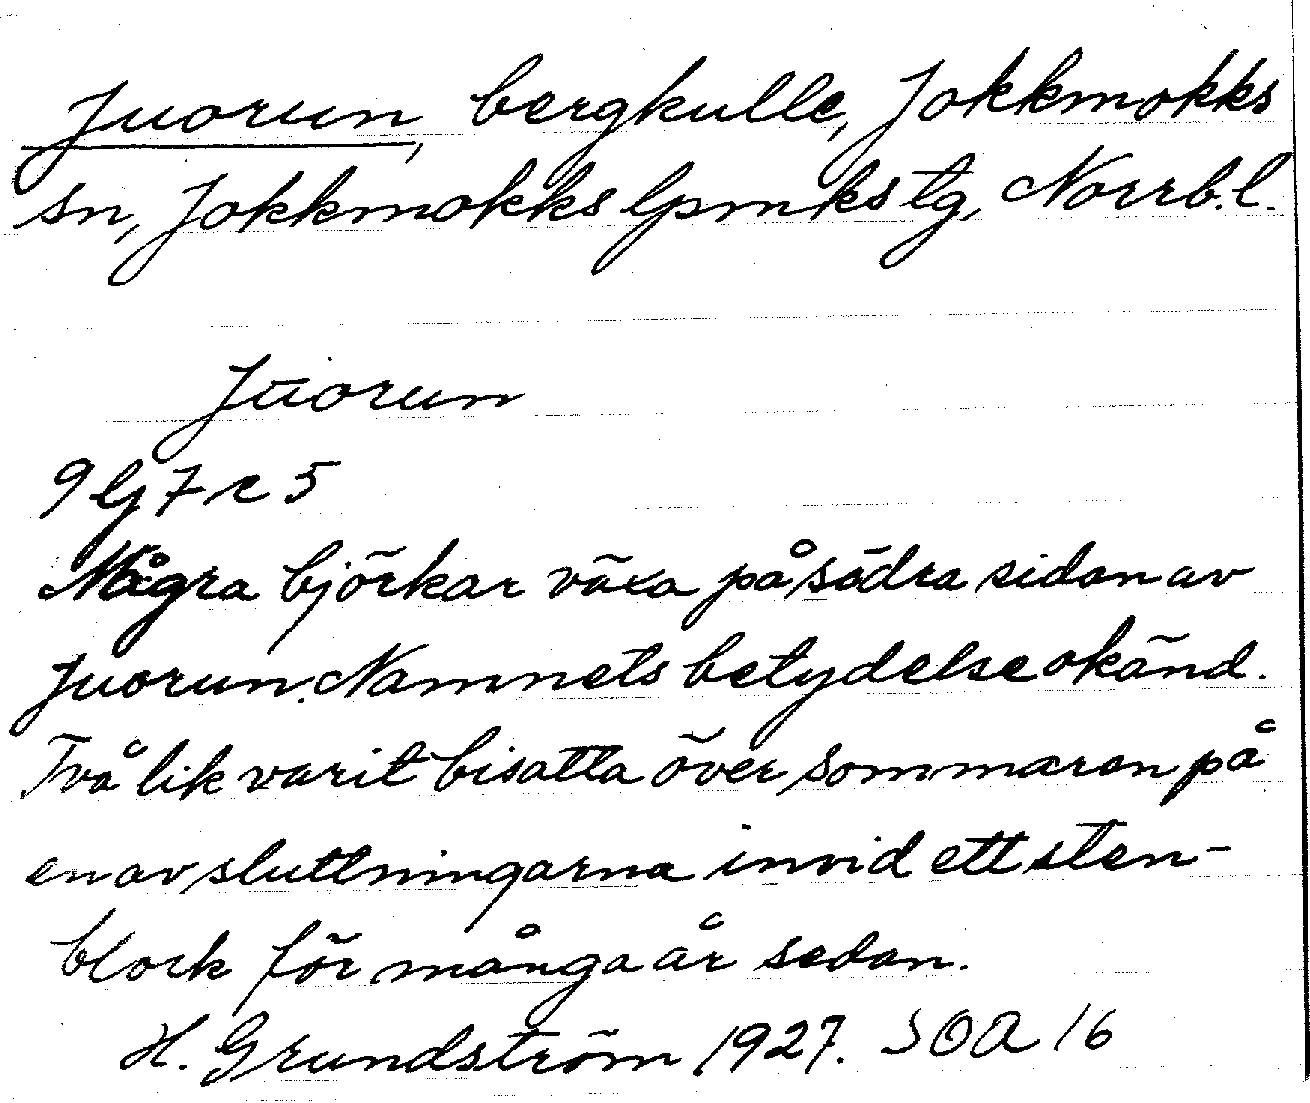 Juorun, bergkulle, Jokkmokks
sn, Jokkmokks lpmks tg, Norrb. l.
Jūorun
7 c 5
Några björkar växa på södra sidan av
Juorun. Namnets betydelse okänd.
Två lik varit bisatta över sommaren på
en av sluttningarna invid ett sten-
block för många år sedan.
H. Grundström 1927. SOA 16